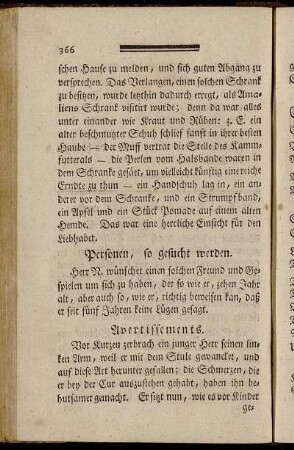 366
schen Hause zu melden, und sich guten Abgang zu
versprechen. Das Verlangen, einen solchen Schrank
zu besitzen, wurde letzthin dadurch erregt, als Ama-
liens Schrank visitirt wurde; denn da war alles
unter einander wie Kraut und Rüben: z. E. ein
alter beschmutzter Schuh schlief sanft in ihrer besten
Haube — der Muff vertrat die Stelle des Kamm-
futterals — die Perlen vom Halsbande waren in
dem Schranke gesäet, um vielleicht künftig eine reiche
Erndte zu thun — ein Handschuh lag in, ein an-
derer vor dem Schranke, und ein Strumpfband,
ein Apfel und ein Stück Pomade auf einem alten
Hemde. Das war eine herrliche Einsicht für den
Liebhaber.
Personen, so gesucht werden.
Herr N. wünschet einen solchen Freund und Ge-
spielen um sich zu haben, der so wie er, zehen Jahr
alt, aber auch so, wie er, richtig beweisen kan, daß
er seit fünf Jahren keine Lügen gesagt.
Avertissements.
Vor Kurzen zerbrach ein junger Herr seinen lin-
ken Arm, weil er mit dem Stule gewancket, und
auf diese Art herunter gefallen; die Schmerzen, die
er bey der Cur auszustehen gehabt, haben ihn be-
hutsamer gemacht. Er sizt nun, wie es vor Kinder
ge-